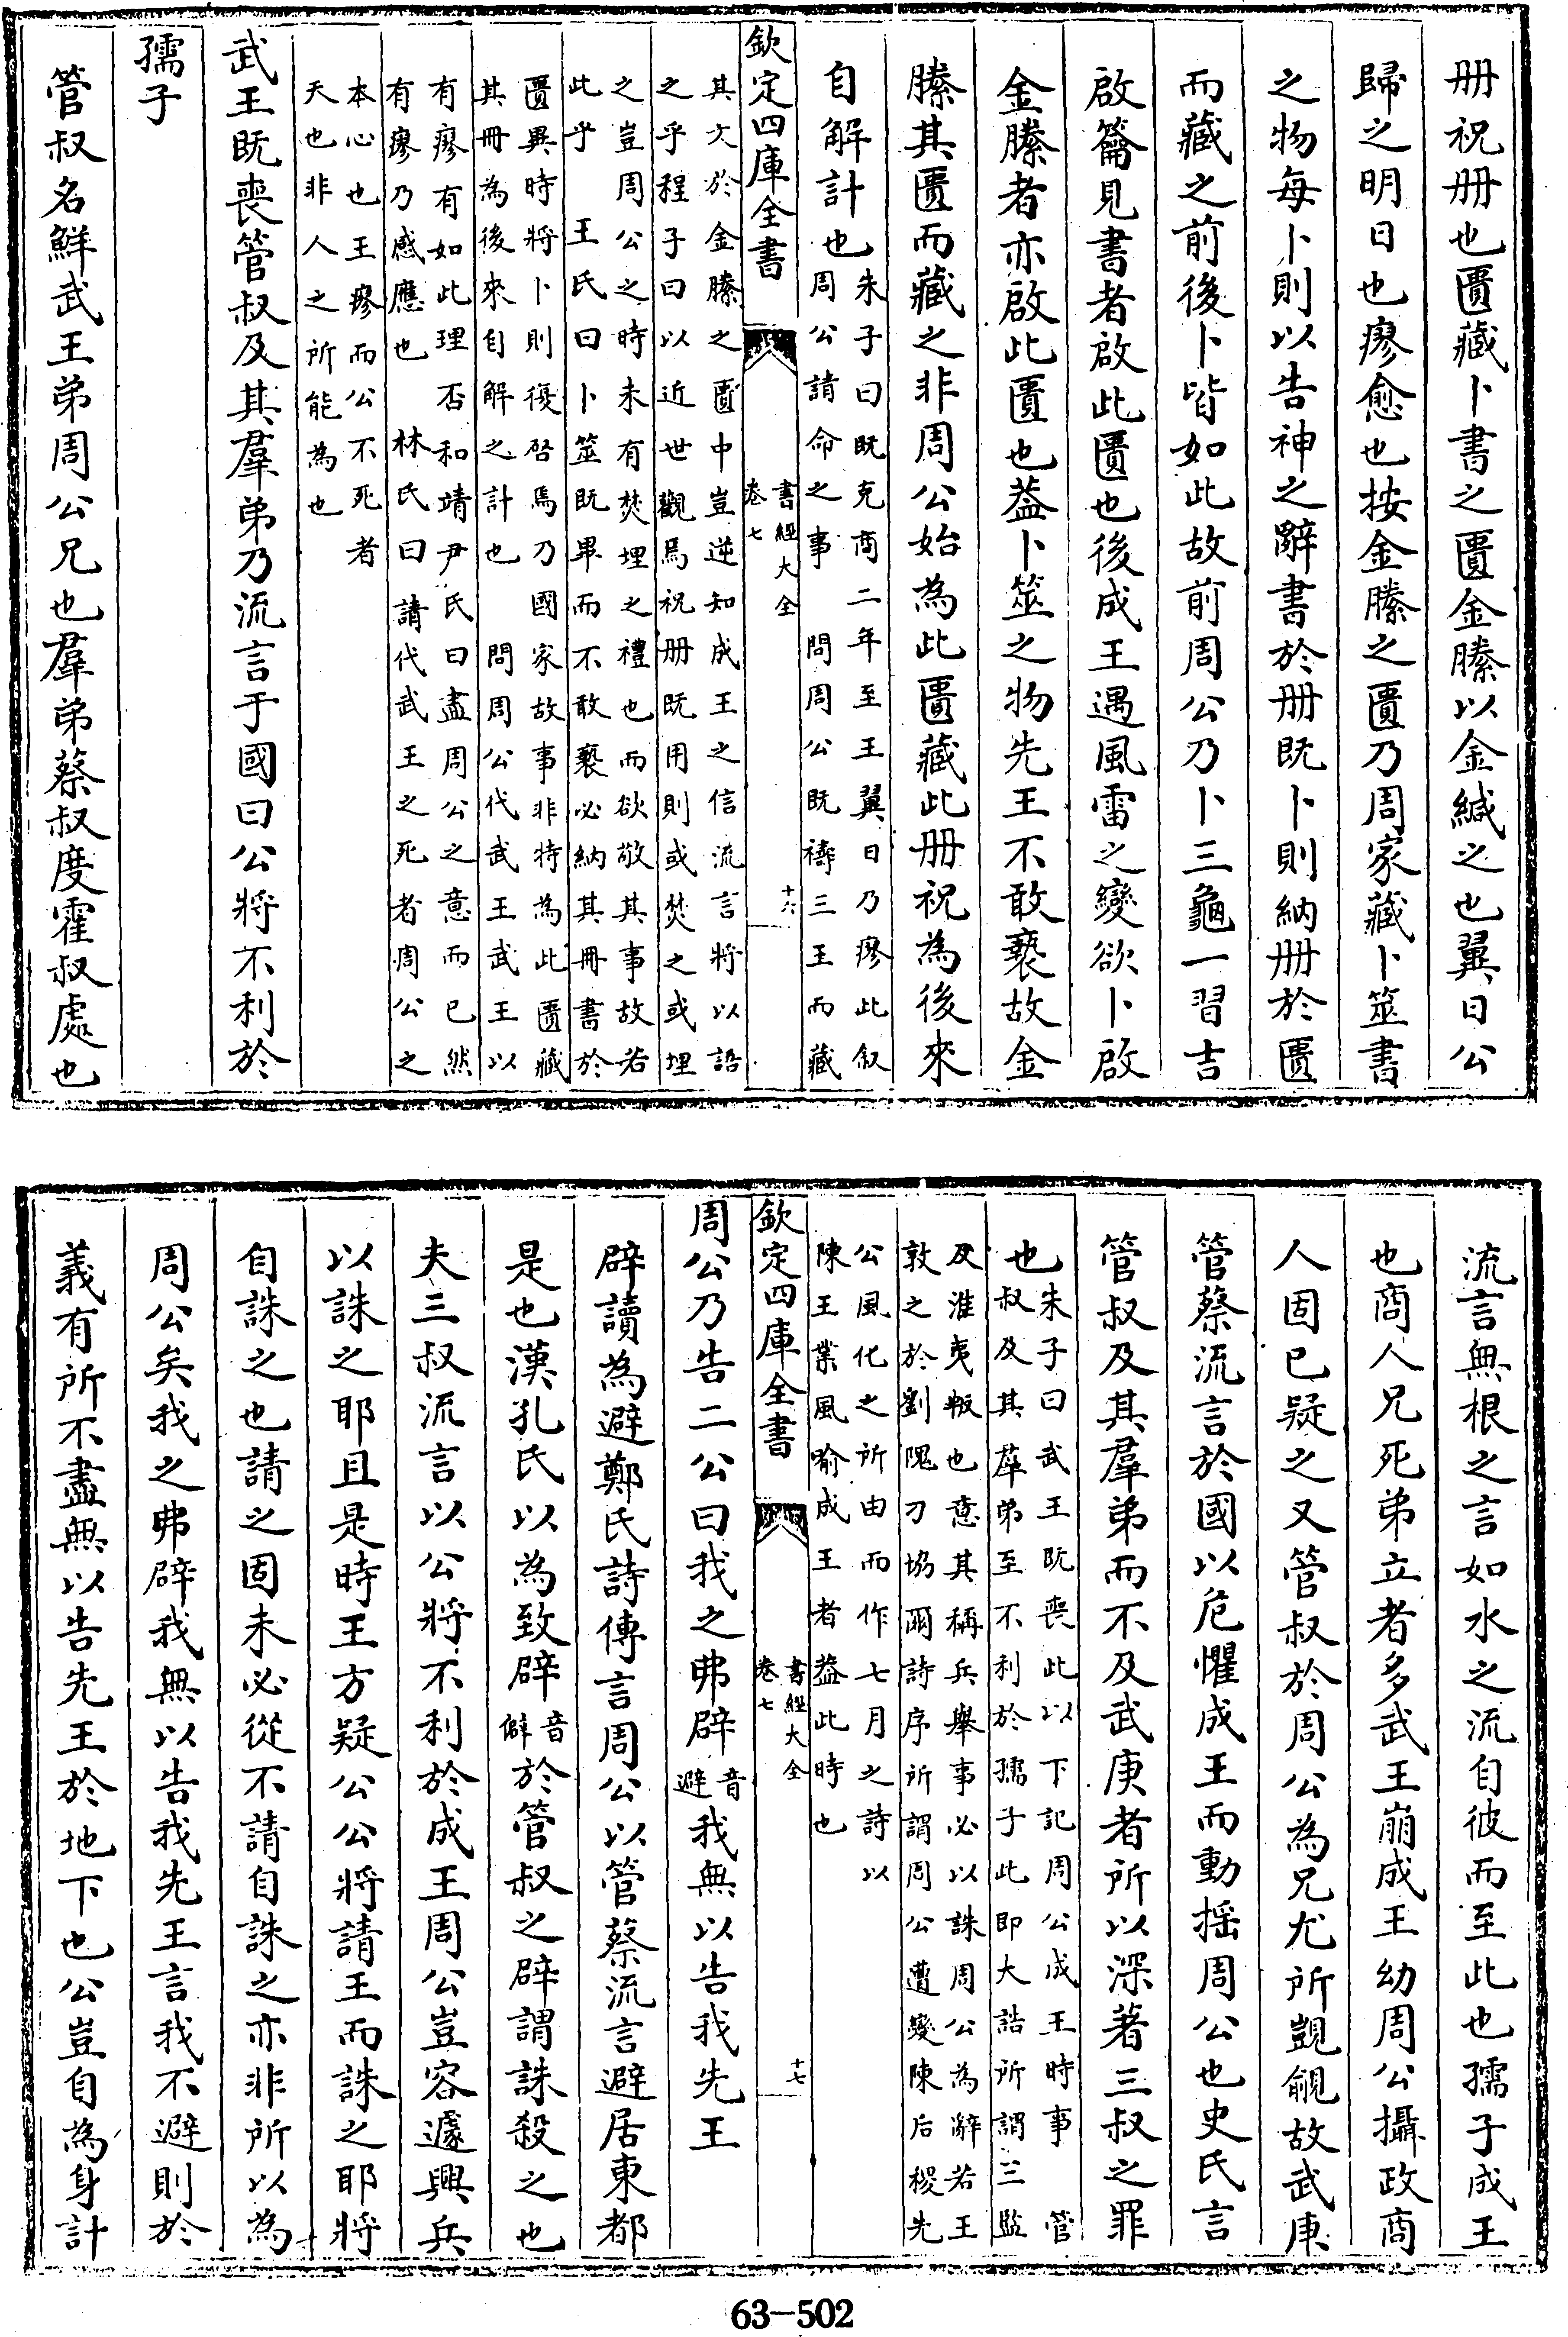 册祝册也匱藏卜書之匱金縢以金緘之也翼日公
歸之明日也瘳愈也按金縢之匱乃周家藏卜筮書
之物每卜則以告神之辭書於册既卜則納册於匱
而藏之前後卜皆如此故前周公乃卜三龜一習吉
啟籥見書者啟此匱也後成王遇風雷之變欲卜啟
金縢者亦啟此匱也葢卜筮之物先王不敢褻故金
縢其匱而藏之非周公始為此匱藏此册祝為後來
自解計也
朱子曰既克商二年至王翼日乃瘳此叙
周公請命之事 問周公既禱三王而藏
欽定四庫全書
書經大全
卷七
十六
其文於金縢之匱中豈逆知成王之信流言將以語
之乎程子曰以近世觀焉祝册既用則或焚之或埋
之豈周公之時未有焚埋之禮也而欲敬其事故若
此乎 王氏曰卜筮既畢而不敢褻必納其冊書於
匱異時將卜則復啓焉乃國家故事非特為此匱藏
其冊為後來自解之計也 問周公代武王武王以
有瘳有如此理否和靖尹氏曰盡周公之意而已然
有瘳乃感應也 林氏曰請代武王之死者周公之
本心也王瘳而公不死者
天也非人之所能為也
武王既喪管叔及其羣弟乃流言于國曰公將不利於
孺子
管叔名鮮武王弟周公兄也羣弟蔡叔度霍叔處也
流言無根之言如水之流自彼而至此也孺子成王
也商人兄死弟立者多武王崩成王幼周公攝政商
人固已疑之又管叔於周公為兄尤所覬覦故武庚
管蔡流言於國以危懼成王而動揺周公也史氏言
管叔及其羣弟而不及武庚者所以深著三叔之罪
也
朱子曰武王既喪此以下記周公成王時事 管
叔及其羣弟至不利於孺子此即大誥所謂三監
及淮夷叛也意其稱兵舉事必以誅周公為辭若王
敦之於劉隗刁協爾詩序所謂周公遭變陳后稷先
公風化之所由而作七月之詩以
陳王業風喻成王者葢此時也
欽定四庫全書
書經大全
卷七
十七
周公乃告二公曰我之弗辟音避我無以告我先王
辟讀為避鄭氏詩傳言周公以管蔡流言避居東都
是也漢孔氏以為致辟音僻於管叔之辟謂誅殺之也
夫三叔流言以公將不利於成王周公豈容遽興兵
以誅之耶且是時王方疑公公將請王而誅之耶將
自誅之也請之固未必從不請自誅之亦非所以為
周公矣我之弗辟我無以告我先王言我不避則於
義有所不盡無以告先王於地下也公豈自為身計
63-502